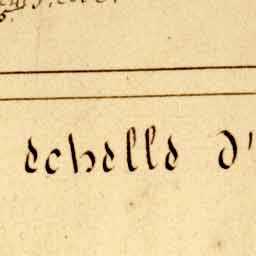 echelle d'